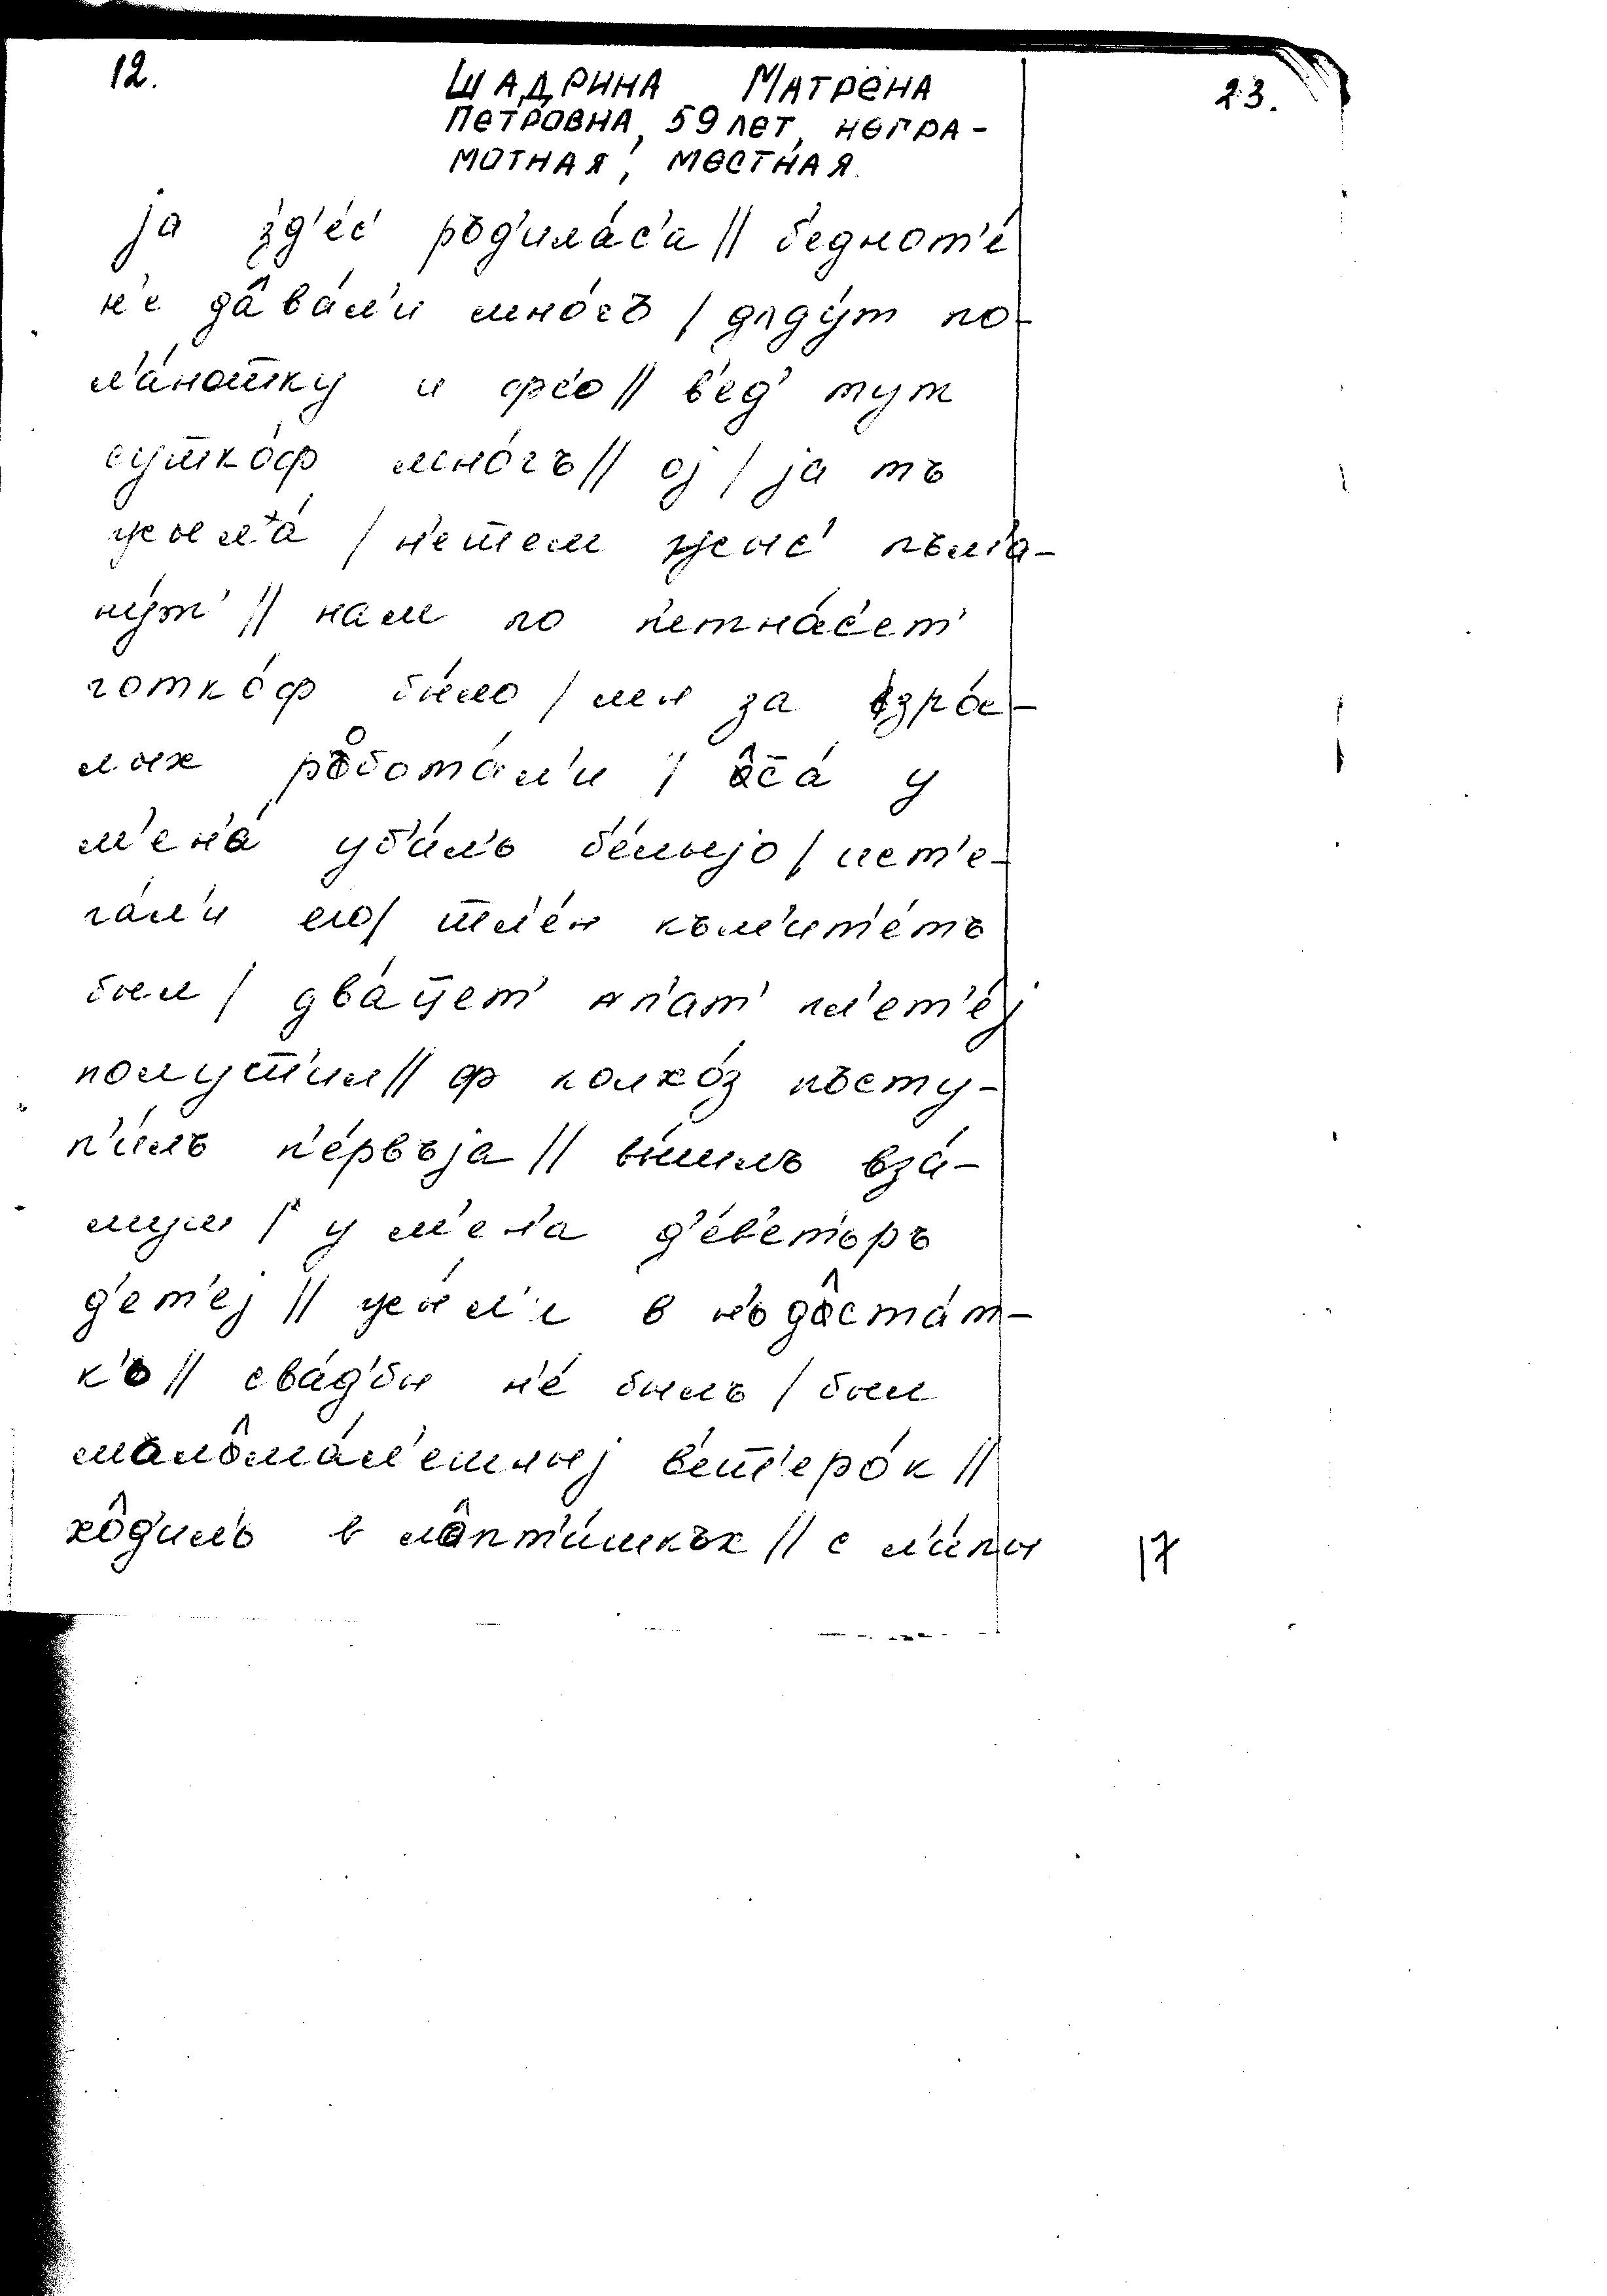 12.
23.
ШАДРИНА МАТРЁНА
ПЕТРОВНА, 59 ЛЕТ, НЕГРА-
МОТНАЯ, МЕСТНАЯ.
ја з'д'е́с' ръд'ила́с'а // б'еднот'е́
н'е да̂ва́л'и мно́гъ / дᴧду́т по-
л'а́ноткy и фс'о // в'ед' тут
сутко́ф мно́гъ // ој / ја тъ
жыла́ / н'еч'ем жыс' пъм'а-
ну́т' // нам по п'етна́с'ет'
готко́ф бы́ло / мы за взро́с-
лых работа́л'и / а̂ца́ у
м'ен'а́ уб'и́л'ь б'е́лыјо / ист'е-
га́л'и ево / чл'е́н към'ит'е́тъ
был / два́цет' п'ат' пл'ет'е́ј
получ'ил // ф колхо́з посту-
п'и́лъ п'е́рвъја // вы́шлъ вза́-
муш / у м'ен'а д'е́в'ет'ьръ
д'ет'еј // жы́л'и в н'ьдо̂ста́т-
к'ь // сва́д'бы н'е́ былъ / был
мало̂ма́л'ешныј в'еч'еро́к //
хо̂д'ил'ь в ло̂пт'и́шкъх // с л'и́пы
17